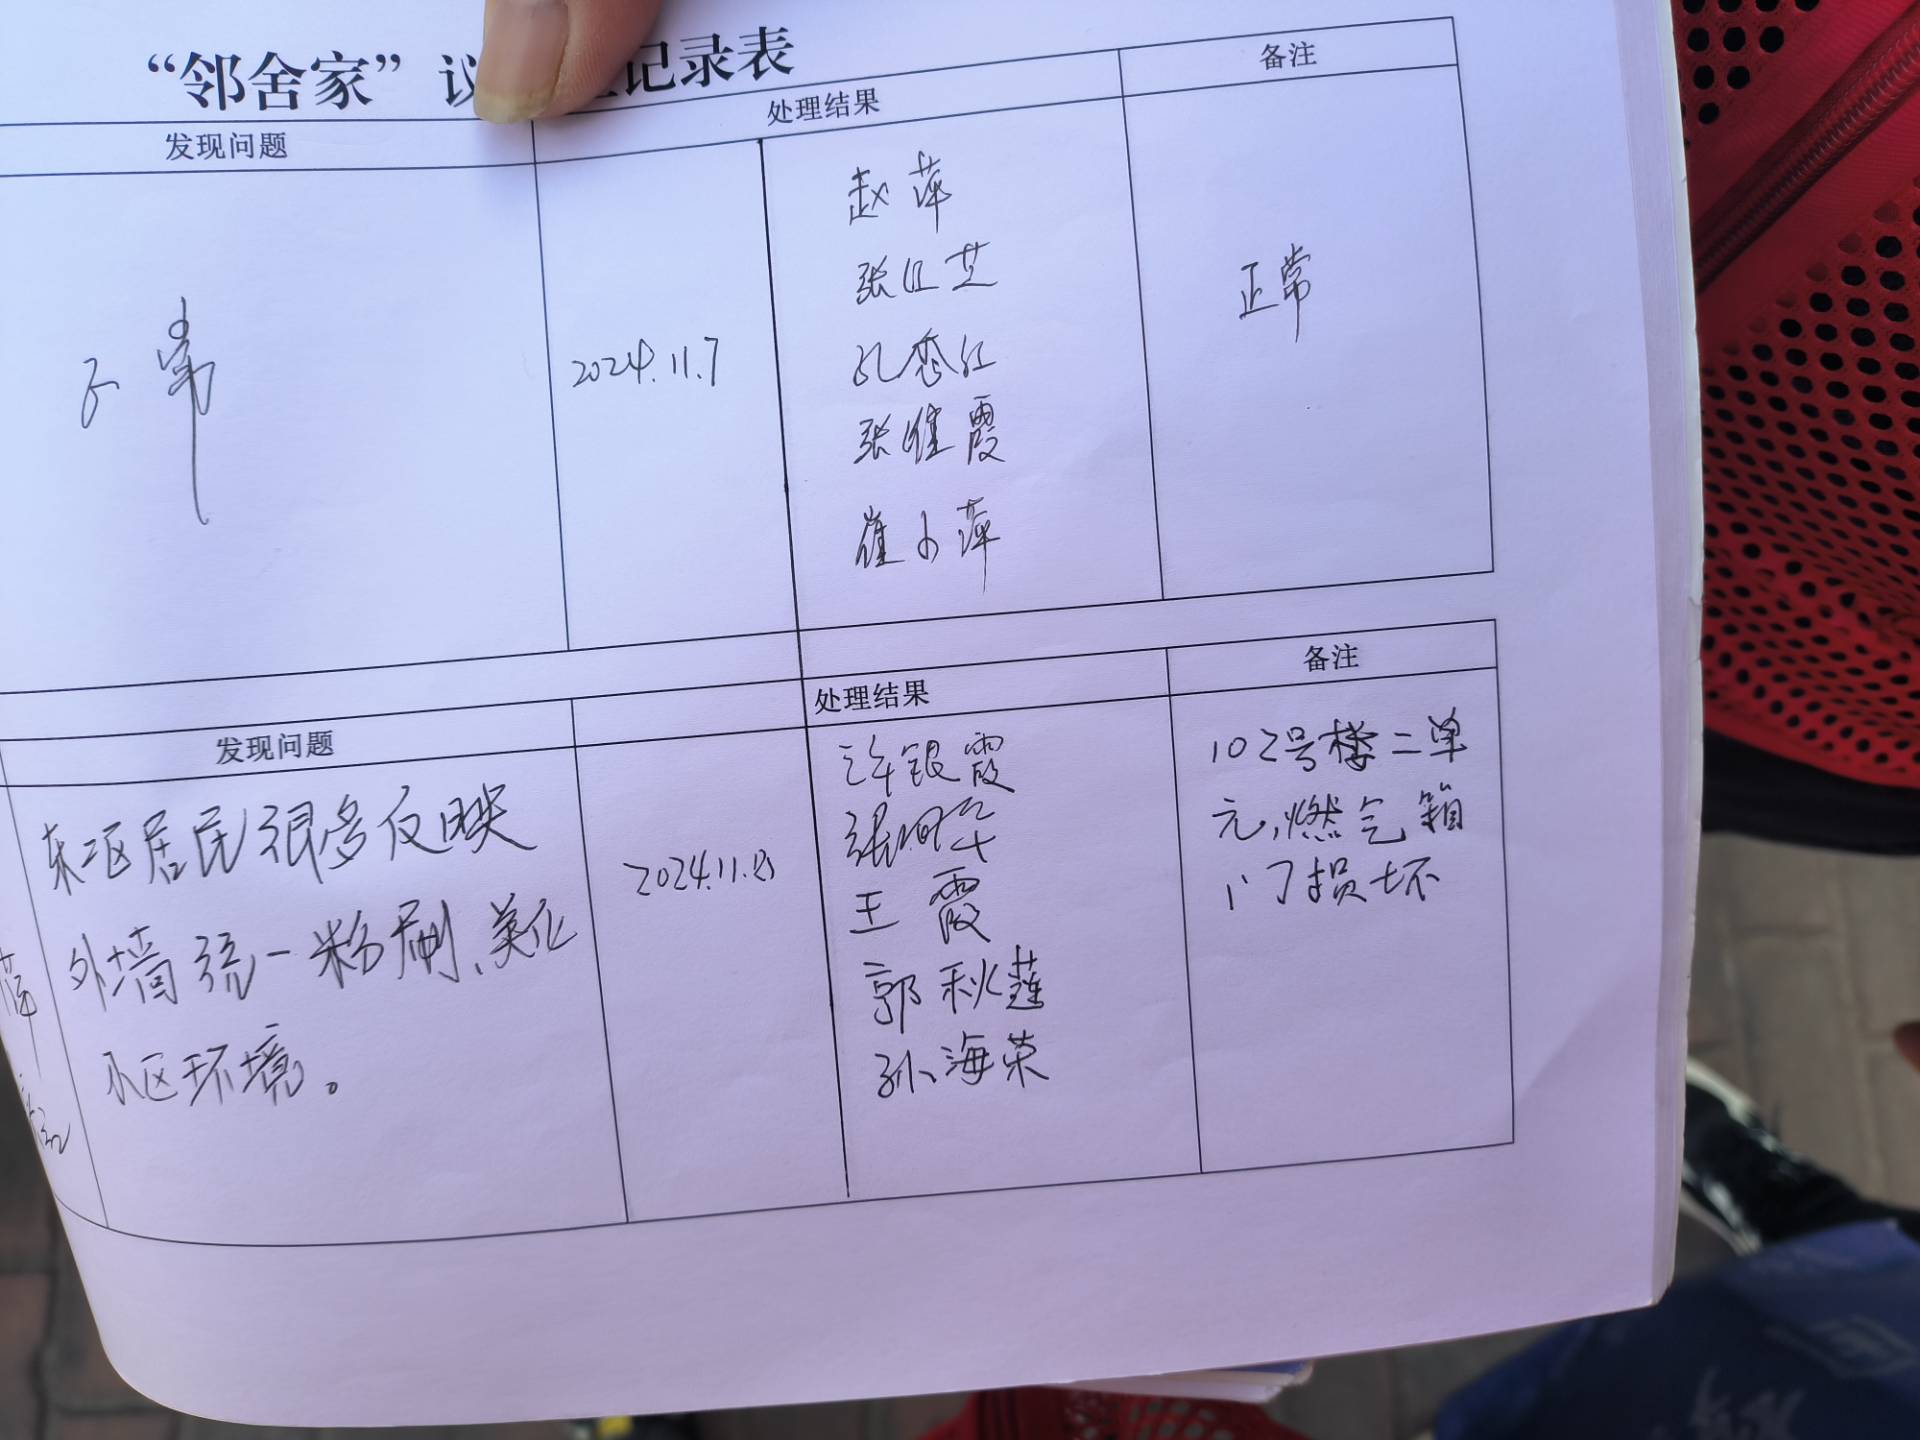 “邻舍家”议 记录表
发现问题
处理结果
备注
正常
2024.11.7
赵萍
张红艺
孔杏红
张唯霞
崔小萍
正常
发现问题
处理结果
备注
东二区居民很多反映
外墙统一粉刷、美化
小区环境。
2024.11.8
许银霞
王霞
郭秋莲
孙海荣
102号楼二单
元,燃气箱
小门损坏